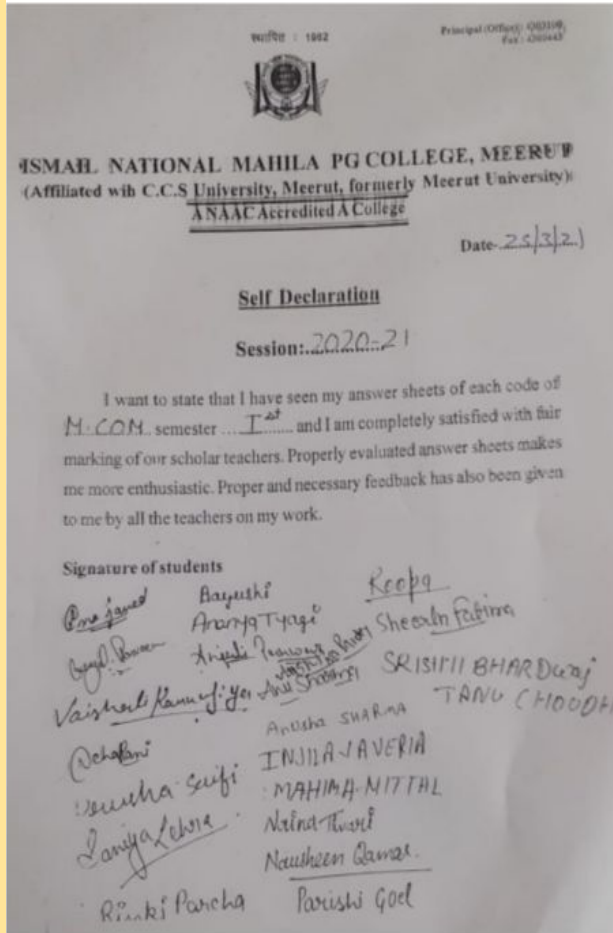 स्थापित : 1962
Principal (Office):
Fax :
ISMAIL NATIONAL MAHILA PG COLLEGE, MEERUT
(Affiliated wih C.C.S University, Meerut, formerly Meerut University)
A NAAC Accredited A College
Date- 25/3/21
Self Declaration
Session:..2020-21
I want to state that I have seen my answer sheets of each code of
M.COM. semester ....Ist...... and I am completely satisfied with fair
marking of our scholar teachers. Properly evaluated answer sheets makes
me more enthusiastic. Proper and necessary feedback has also been given
to me by all the teachers on my work.
Signature of students
Aayushi Roopa
Ananya Tyagi
Anjali Sheeraln Fatima
Vaishali Anu Sharma SRISHTI BHARDwaj
TANU CHOUDH
Anusha SHARMA
Neha Rani INJILA JAVERIA
Saifi MAHIMA-MITTAL
Saniya
Nausheen Qamar.
Rinki Parcha Parishi Goel